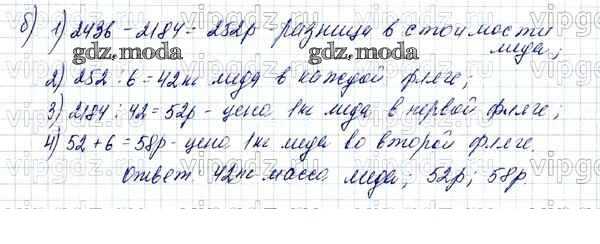 б) 1) 2436 - 2184 = 252р - разница в стоимости
меда;
gdz.moda gdz.moda
2) 252 : 6 = 42кг меда - в каждой фляге;
3) 2184 : 42 = 52р - цена 1кг меда в первой фляге;
4) 52 + 6 = 58р - цена 1кг меда во второй фляге.
Ответ: 42кг масса меда; 52р; 58р.